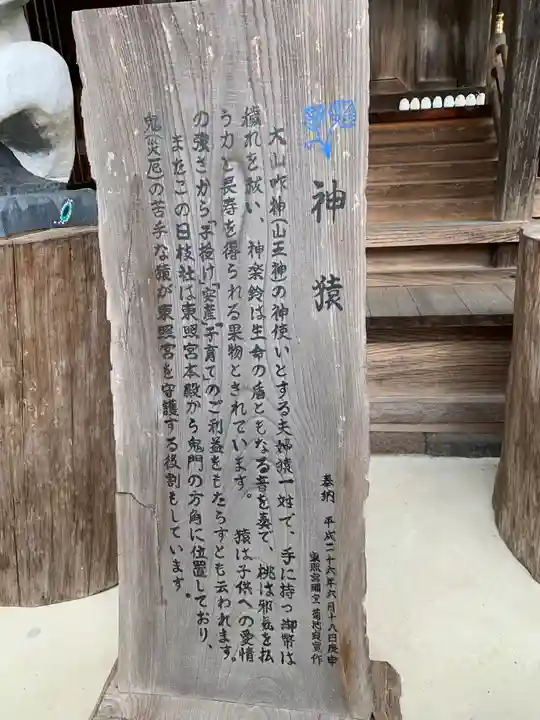 神猿
大山咋神(山王神)の神使いとする夫婦猿一対で、手に持つ御幣は
穢れを祓い、神楽鈴は生命の盾ともなる音を奏で、桃は邪気を払
う力と長寿を得られる果物とされています。 猿は子供への愛情
の強さから「子授け」「安産」「子育て」のご利益をもたらすとも云われます。
またこの日枝社は東照宮本殿から鬼門の方角に位置しており、
鬼災厄の苦手な猿が東照宮を守護する役割もしています。
奉納 平成二十六年六月十八日庚申
東照宮 菊池 作